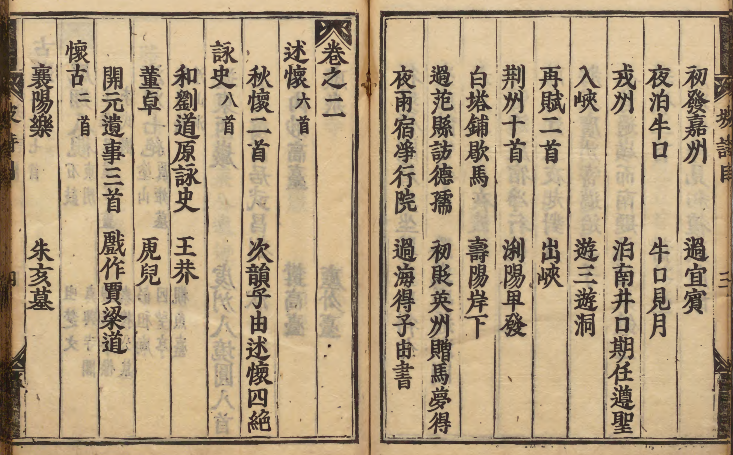 初發嘉州　過宜賓
夜泊牛口　牛口見月
戎州　泊南井口期任遵聖
入峽　遊三遊洞
再賦二首　出峽
荆州十首　浰陽早發
白塔鋪歇馬　壽陽岸下
過范縣訪德孺　初貶英州贈馬夢得
夜雨宿淨行院　過海得子由書
卷之二
述懷六首
秋懷二首　次韻子由述懷四絶
詠史八首
和劉道原詠史　王莽
董卓　虎兒
開元遺事三首　戲作賈梁道
懷古二首
襄陽樂　朱亥墓